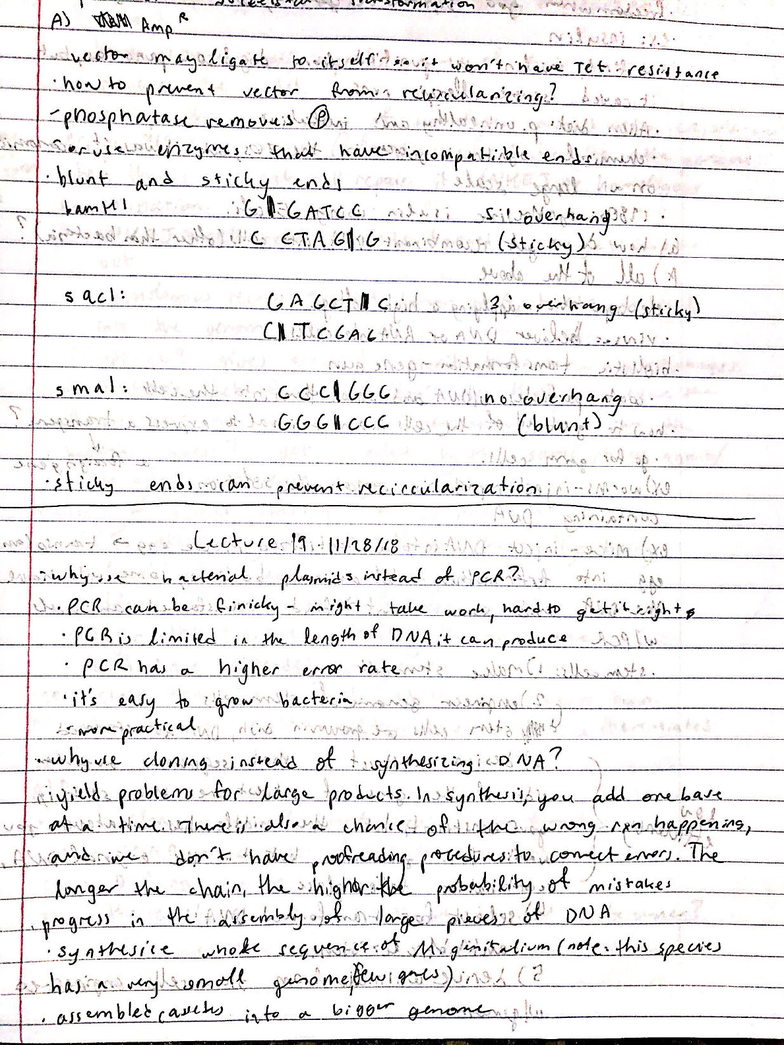 transformation
A) Amp R
vector may ligate to itself so it won't have Tet resistance
· how to prevent vector from recircularizing?
- phosphatase removes Ⓟ
or use enzymes that have incompatible ends
· blunt and sticky ends
bamHI G|GATCC 5' overhang
C CTAG|G (sticky)
sacI: GAGCT|C 3' overhang (sticky)
C|TCGAG
smaI: CCC|GGG no overhang
GGG|CCC (blunt)
· sticky ends can prevent recircularization
Lecture 19 11/28/18
· why use bacterial plasmids instead of PCR?
· PCR can be finicky - might take work, hard to get it right
· PCR is limited in the length of DNA it can produce
· PCR has a higher error rate
· it's easy to grow bacteria
- more practical
· why use cloning instead of synthesizing DNA?
· yield problems for large products. In synthesis, you add one base
at a time. There is also a chance of the wrong rxn happening,
and we don't have proofreading procedures to correct errors. The
longer the chain, the higher the probability of mistakes
· progress in the assembly of large pieces of DNA
· synthesize whole sequence of M. genitalium (note: this species
has a very small genome, few genes)
· assembled into a bigger genome